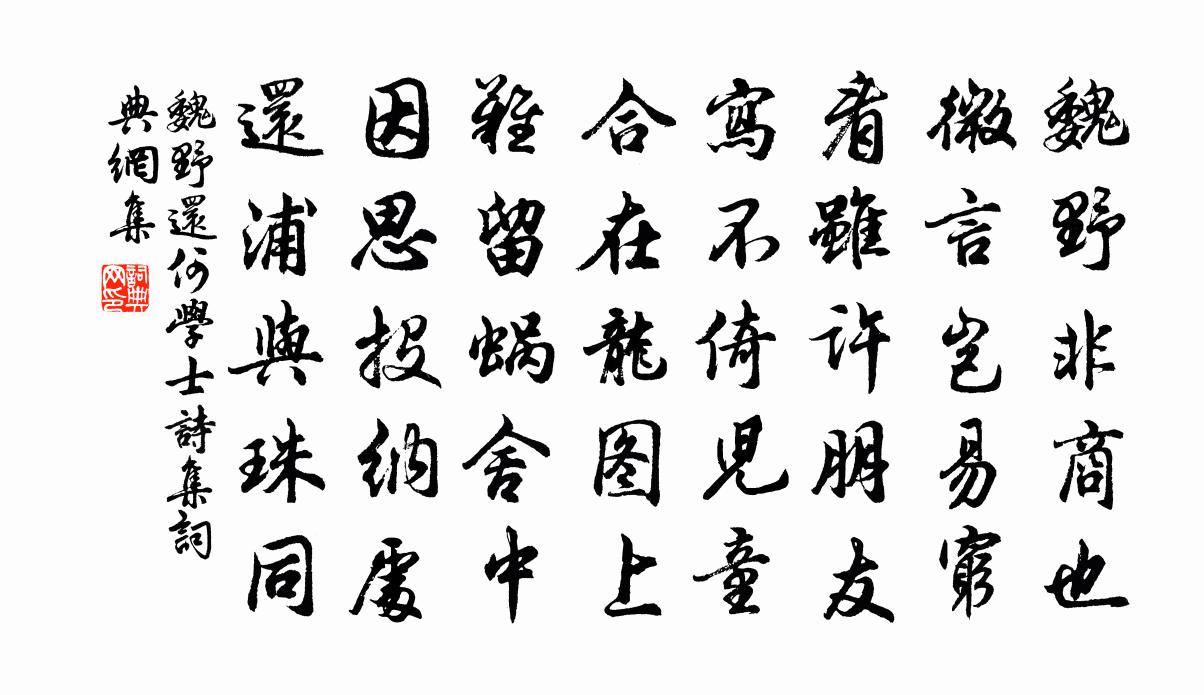 魏野非商也
微言岂易窮
看雖許朋友
寫不倚兒童
合在龍图上
難留蜗舍中
因思投納處
還浦與珠同
魏野還何學士詩集詞
典網集
詞典
网印